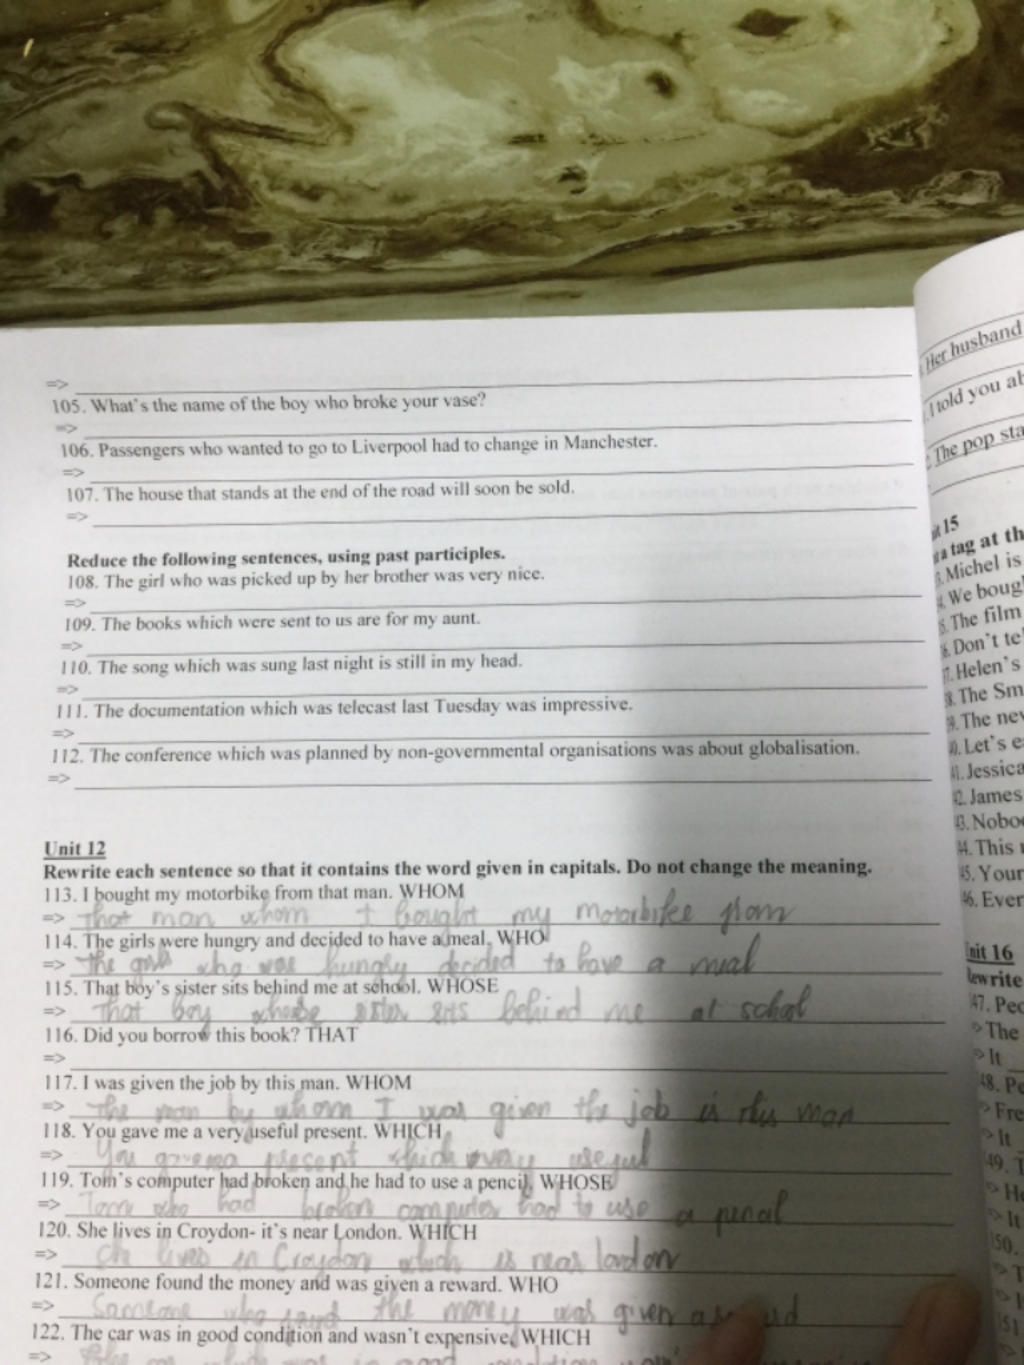 =>
105. What's the name of the boy who broke your vase?
=>
106. Passengers who wanted to go to Liverpool had to change in Manchester.
=>
107. The house that stands at the end of the road will soon be sold.
=>
Reduce the following sentences, using past participles.
108. The girl who was picked up by her brother was very nice.
=>
109. The books which were sent to us are for my aunt.
=>
110. The song which was sung last night is still in my head.
=>
111. The documentation which was telecast last Tuesday was impressive.
=>
112. The conference which was planned by non-governmental organisations was about globalisation.
=>
Unit 12
Rewrite each sentence so that it contains the word given in capitals. Do not change the meaning.
113. I bought my motorbike from that man. WHOM
=> That man whom I bought my motorbike from
114. The girls were hungry and decided to have a meal. WHO
=> The girls who was hungry decided to have a meal
115. That boy's sister sits behind me at school. WHOSE
=> That boy whose sister sits behind me at school
116. Did you borrow this book? THAT
=>
117. I was given the job by this man. WHOM
=> The man by whom I was given the job is this man
118. You gave me a very useful present. WHICH
=> You present which useful
119. Tom's computer had broken and he had to use a pencil. WHOSE
=> Tom who had broken computer had to use a pencil
120. She lives in Croydon- it's near London. WHICH
=> lives in Croydon which is near london
121. Someone found the money and was given a reward. WHO
=> Someone who the money was given
122. The car was in good condition and wasn't expensive. WHICH
=>
Her husband
I told you
The pop
15
a tag at
Michel is
We
The film
Don't
Helen's
The
The
Let's
Jessica
James
This
Your
16
The
It
It